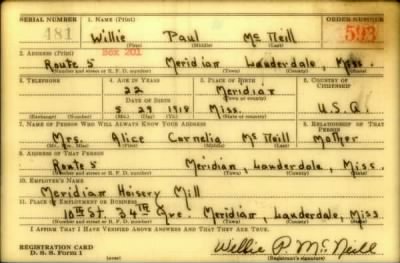 SERIAL NUMBER 1. NAME (Print) ORDER NUMBER
481 Willie Paul McNeill 593
(First) (Middle) (Last)
2. ADDRESS (Print) BOX 201
Route 5 Meridian Lauderdale, Miss.
(Number and street or R. F. D. number) (Town) (County) (State)
3. TELEPHONE 4. AGE IN YEARS 5. PLACE OF BIRTH 6. COUNTRY OF CITIZENSHIP
22 Meridian
DATE OF BIRTH (Town or county)
5 29 1918 Miss. U.S.A.
(Exchange) (Number) (Mo.) (Day) (Yr.) (State or country)
7. NAME OF PERSON WHO WILL ALWAYS KNOW YOUR ADDRESS 8. RELATIONSHIP OF THAT PERSON
Mrs. Alice Cornelia McNeill Mother
(Mr., Mrs., Miss) (First) (Middle) (Last)
9. ADDRESS OF THAT PERSON
Route 5 Meridian, Lauderdale, Miss.
(Number and street or R. F. D. number) (Town) (County) (State)
10. EMPLOYER'S NAME
Meridian Hoisery Mill
11. PLACE OF EMPLOYMENT OR BUSINESS
10th St. 34th Ave. Meridian, Lauderdale, Miss
(Number and street or R. F. D. number) (Town) (County) (State)
I AFFIRM THAT I HAVE VERIFIED ABOVE ANSWERS AND THAT THEY ARE TRUE.
REGISTRATION CARD
D. S. S. Form 1 (over) Willie P. McNeill
(Registrant's signature)